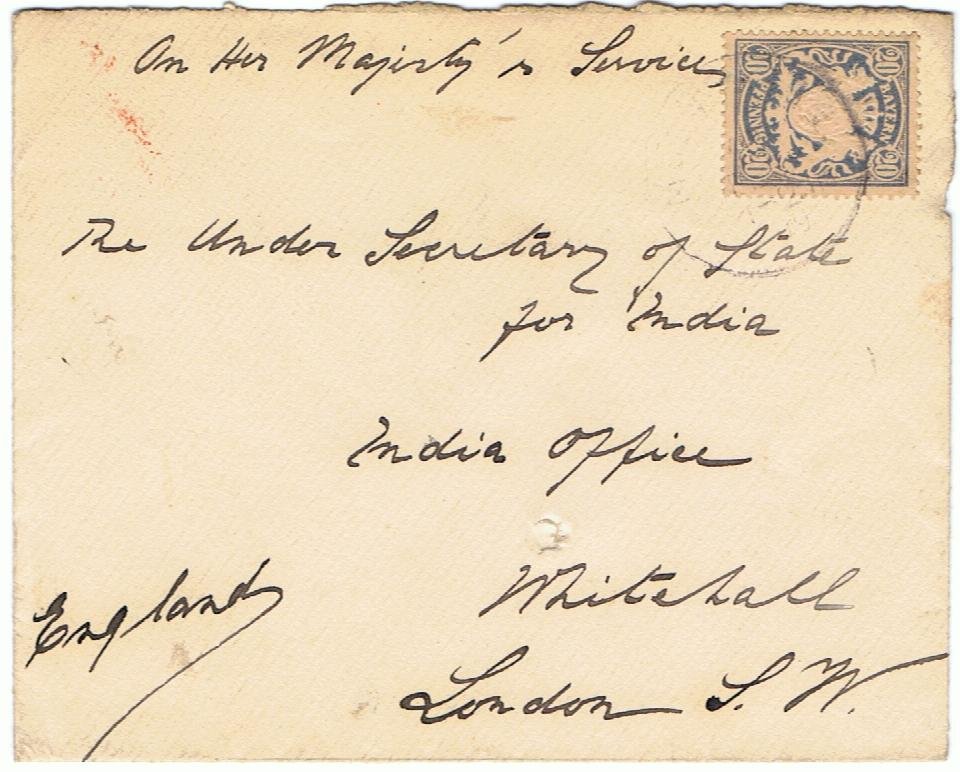 On Her Majesty's Service
20 20
BAYERN
PFENNIG
20 20
The Under Secretary of State
for India
India Office
Whitehall
England
London S. W.